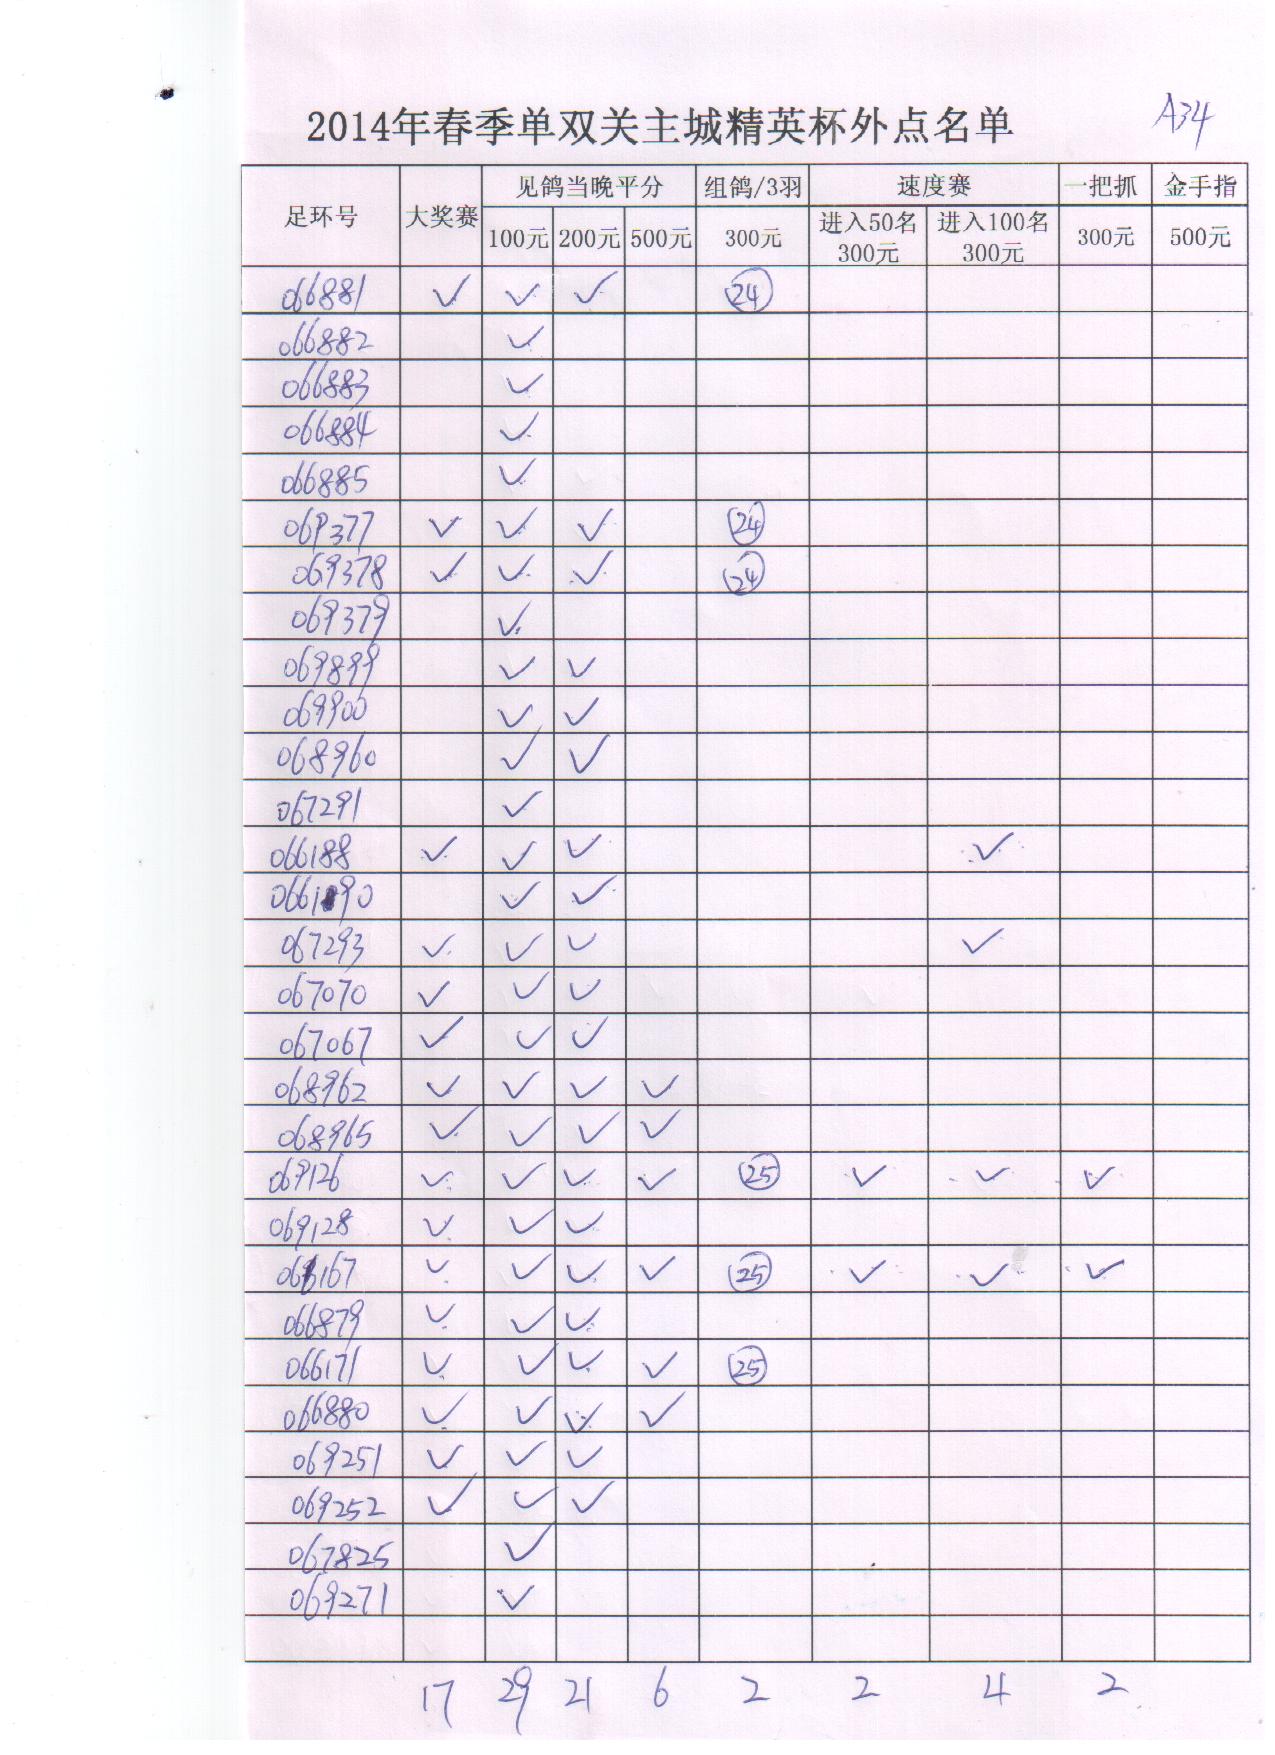 2014年春季单双关主城精英杯外点名单 A34
足环号 大奖赛 见鸽当晚平分 组鸽/3羽 速度赛 一把抓 金手指
100元 200元 500元 300元 进入50名 300元 进入100名 300元 300元 500元
066881 ✓ ✓ ✓ 24
066882 ✓
066883 ✓
066884 ✓
066885 ✓
069377 ✓ ✓ ✓ 24
069378 ✓ ✓ ✓ 24
069379 ✓
069899 ✓ ✓
069900 ✓ ✓
068960 ✓ ✓
067291 ✓
066188 ✓ ✓ ✓ ✓
066190 ✓ ✓
067293 ✓ ✓ ✓ ✓
067070 ✓ ✓ ✓
067067 ✓ ✓ ✓
068962 ✓ ✓ ✓ ✓
068965 ✓ ✓ ✓ ✓
069126 ✓ ✓ ✓ ✓ 25 ✓ ✓ ✓
069128 ✓ ✓ ✓
✓ ✓ ✓ ✓ 25 ✓ ✓ ✓
066879 ✓ ✓ ✓
066171 ✓ ✓ ✓ ✓ 25
066880 ✓ ✓ ✓ ✓
069251 ✓ ✓ ✓
069252 ✓ ✓ ✓
067825 ✓
069271 ✓
17 29 21 6 2 2 4 2